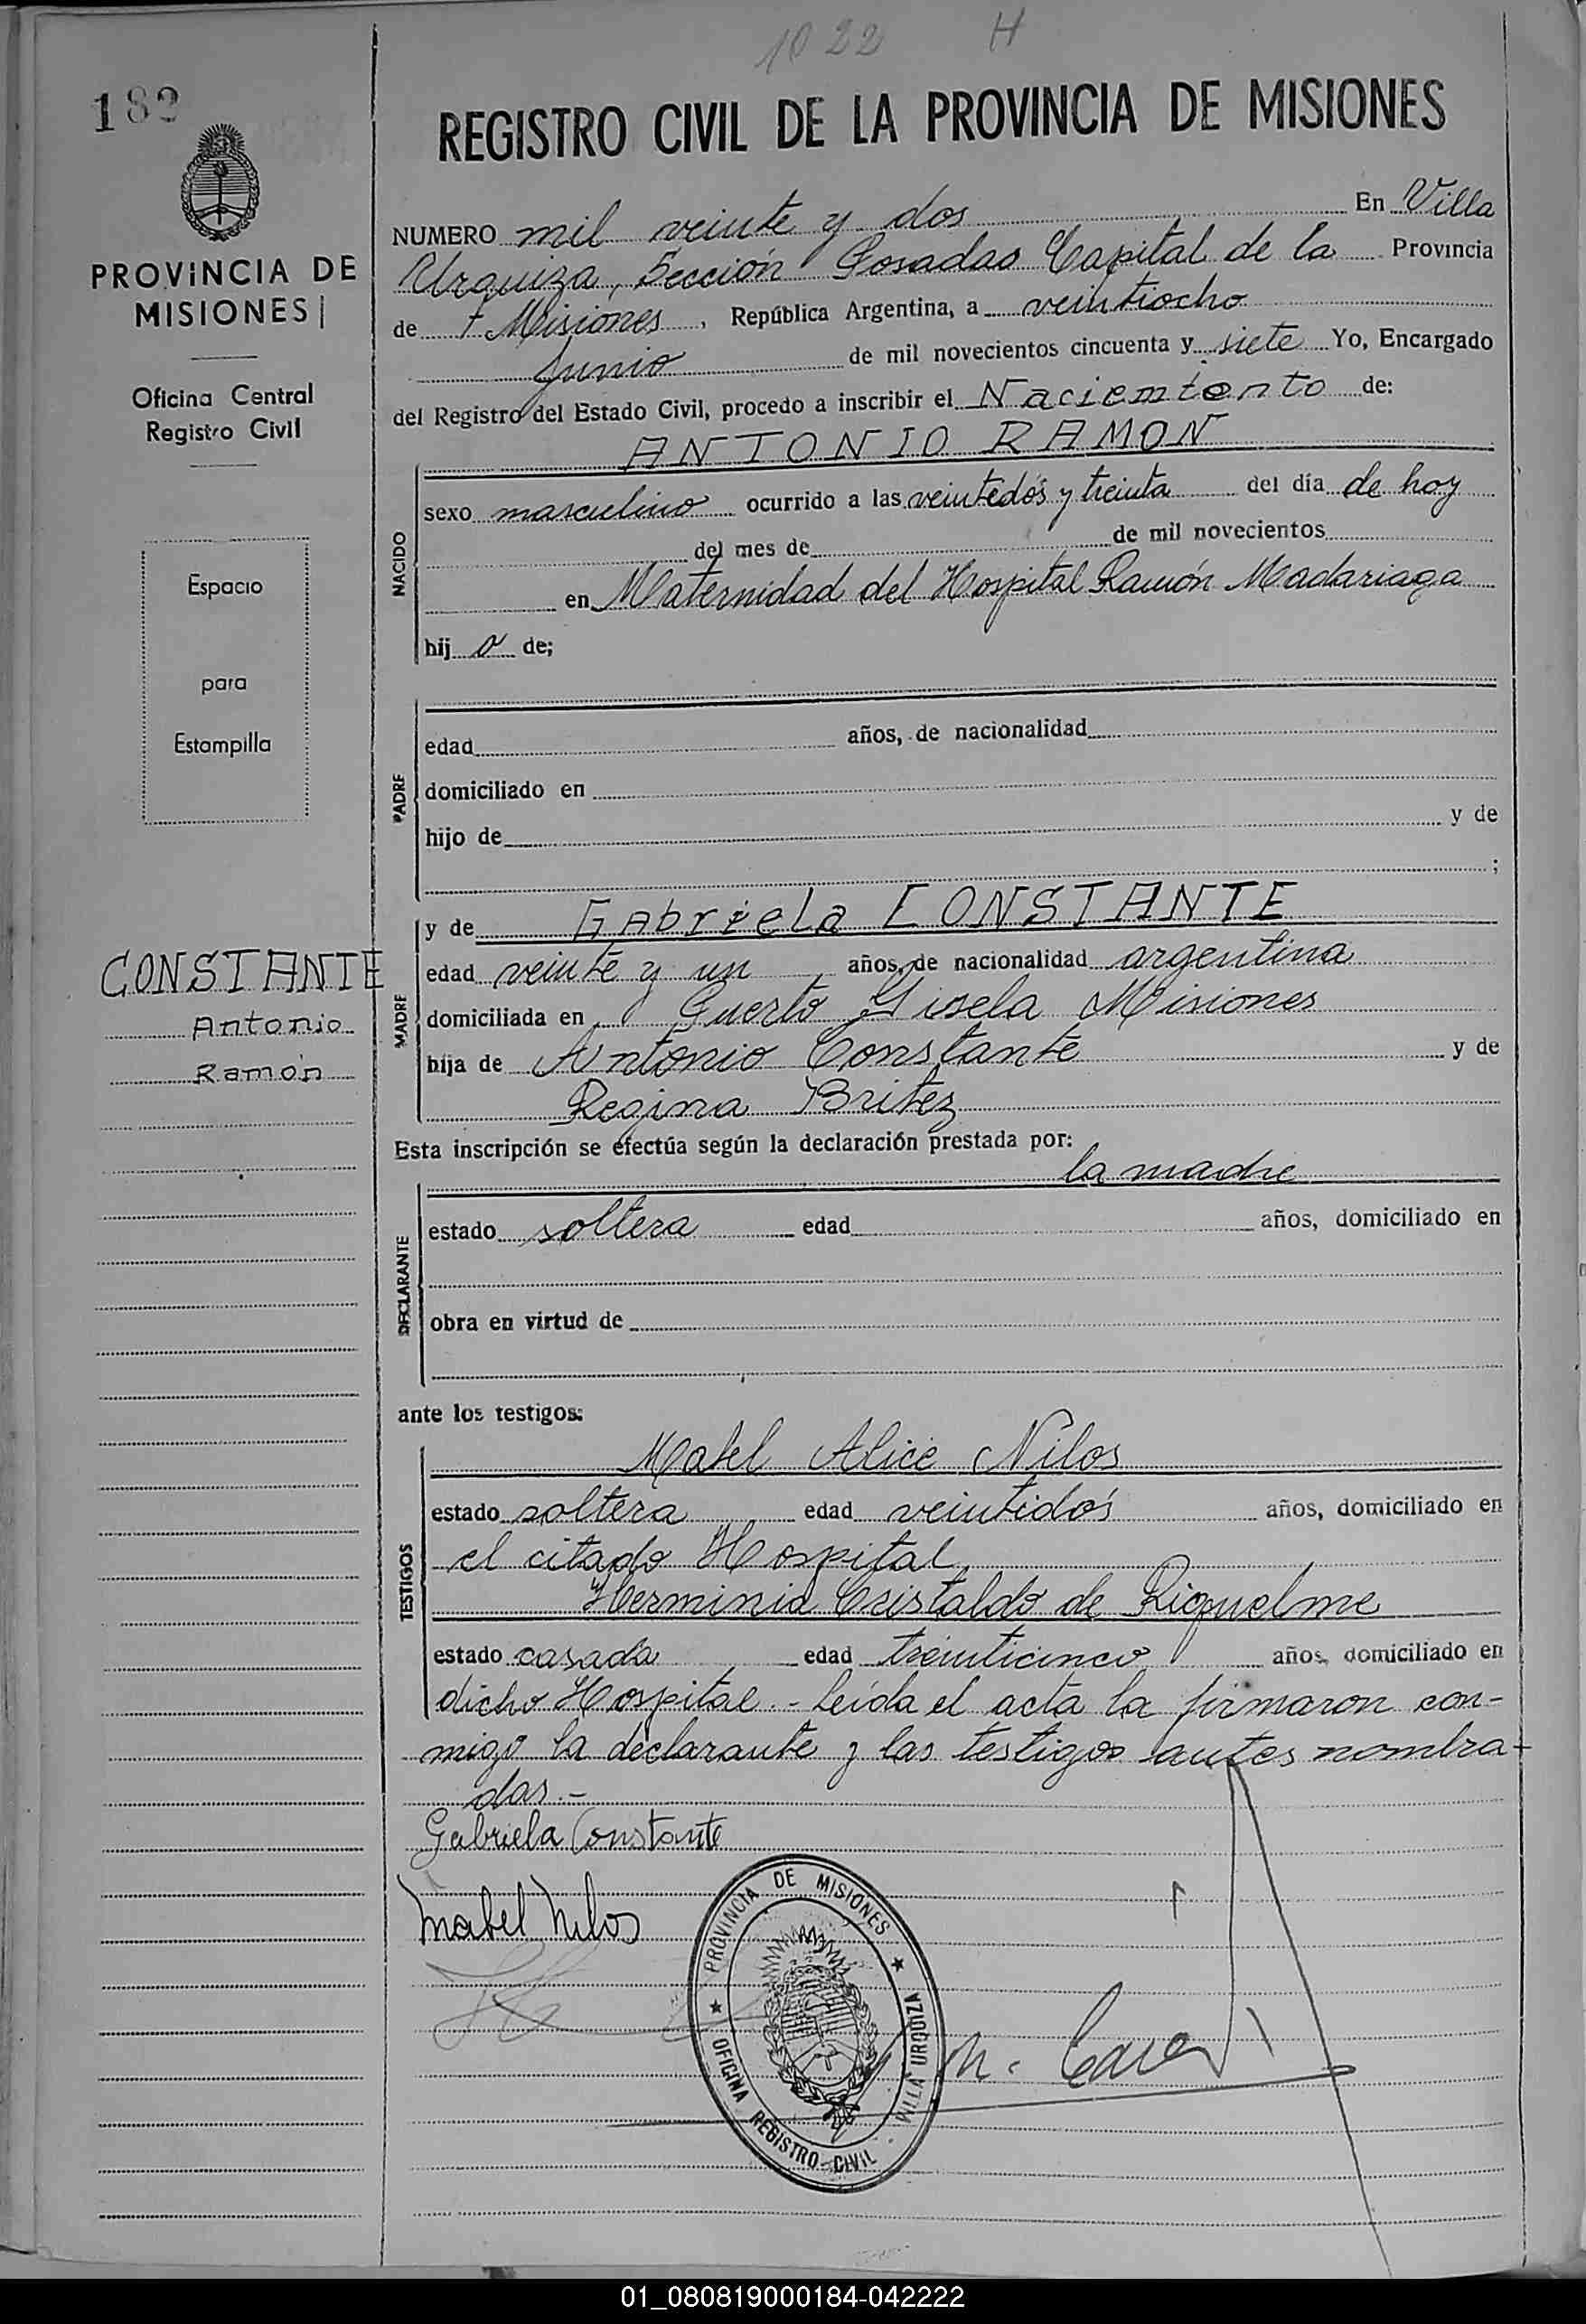 1022 H
182
REGISTRO CIVIL DE LA PROVINCIA DE MISIONES
PROVINCIA DE
MISIONES
Oficina Central
Registro Civil
Espacio
para
Estampilla
CONSTANTE
Antonio
Ramón
NUMERO mil veinte y dos En Villa
Urquiza, Sección Posadas Capital de la Provincia
de Misiones, República Argentina, a veintiocho
Junio de mil novecientos cincuenta y siete Yo, Encargado
del Registro del Estado Civil, procedo a inscribir el Nacimiento de:
ANTONIO RAMON
NACIDO
sexo masculino ocurrido a las veintedós y treinta del día de hoy
del mes de de mil novecientos
en Maternidad del Hospital Ramón Madariaga
hij o de;
PADRE
edad años, de nacionalidad
domiciliado en
hijo de y de
;
MADRE
y de Gabriela CONSTANTE
edad veinte y un años, de nacionalidad argentina
domiciliada en Puerto Gisela Misiones
hija de Antonio Constante y de
Regina Britez
Esta inscripción se efectúa según la declaración prestada por:
la madre
DECLARANTE
estado soltera edad años, domiciliado en
obra en virtud de
ante los testigos:
TESTIGOS
Mabel Alice Nilos
estado soltera edad veintidós años, domiciliado en
el citado Hospital
Herminia Cristaldo de Riquelme
estado casada edad treinticinco años, domiciliado en
dicho Hospital.- Leída el acta la firmaron con-
migo la declarante y las testigos antes nombra-
das.-
Gabriela Constante
Mabel Nilos
PROVINCIA DE MISIONES
OFICINA REGISTRO CIVIL
VILLA URQUIZA
01_080819000184-042222